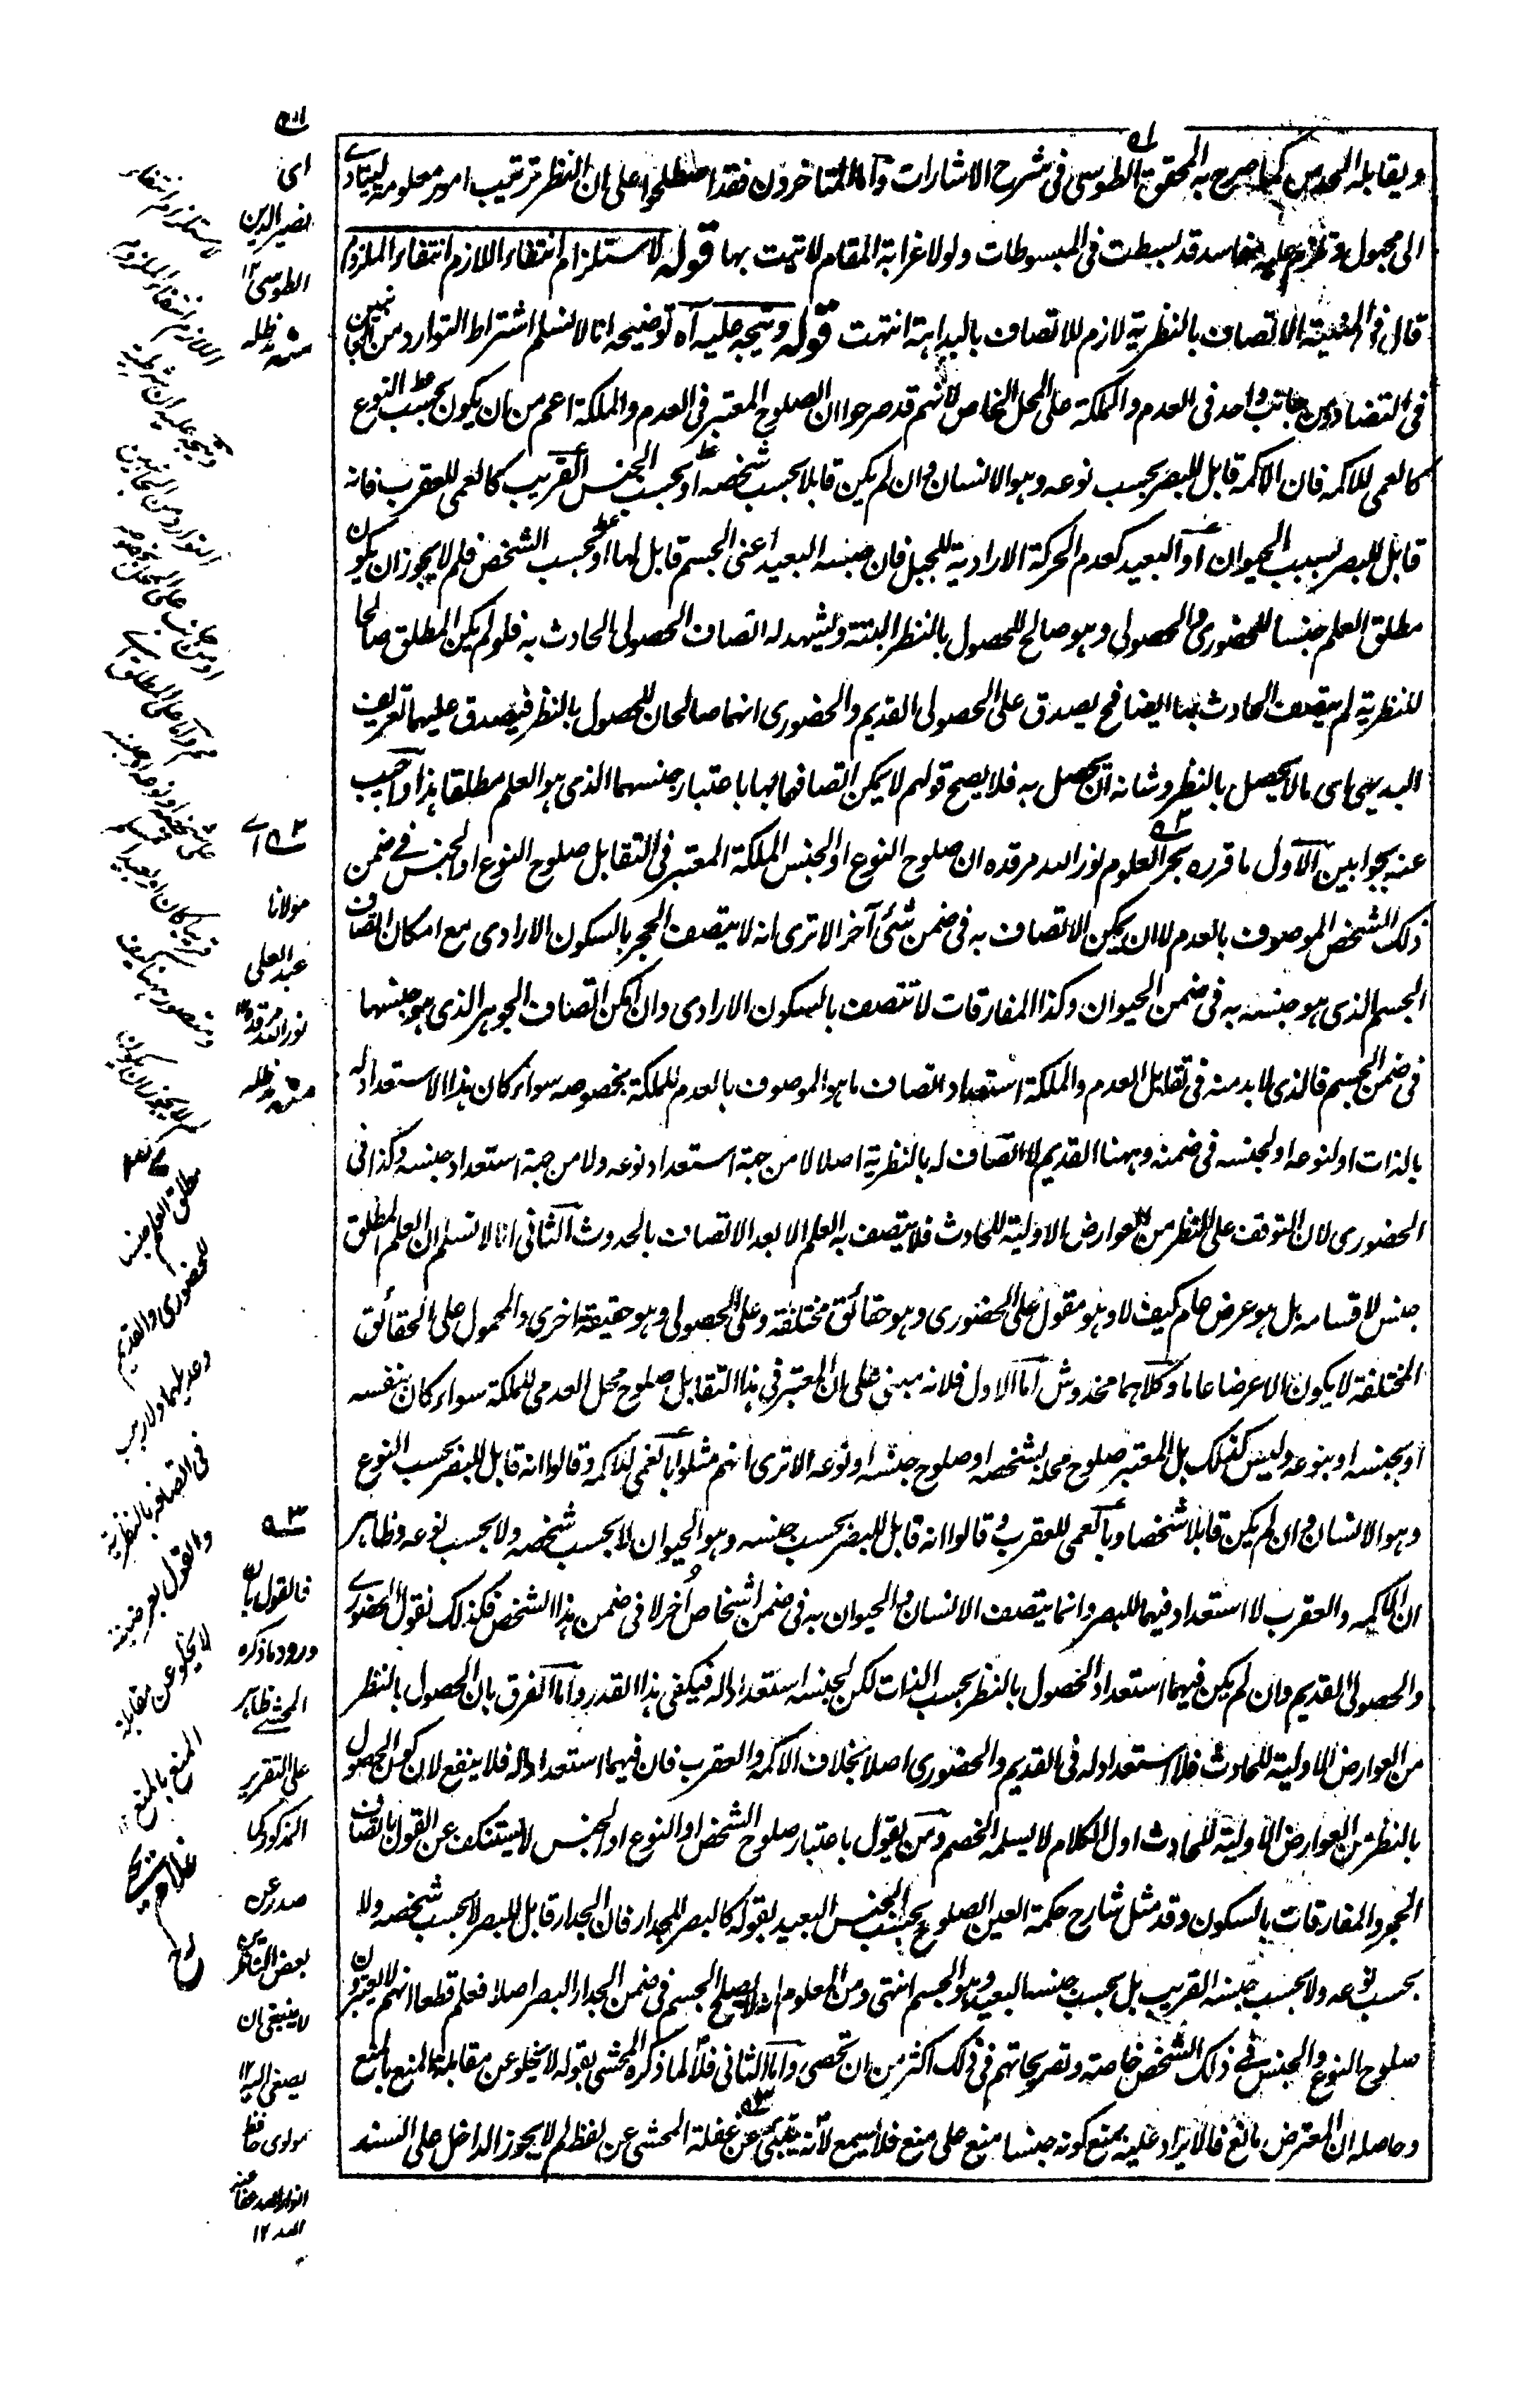 ويقابله الحدس كما صرح به المحقق الطوسى فى شرح الاشارات واما المتاخرون فقد اصطلحوا على ان النظر ترتيب امور معلومة ليتادى
الى مجهول مفاسد قد بسطت فى المبسوطات ولولا غرابة المقام لاتيت بها قوله لاستلزام انتفاء اللازم انتفاء الملزوم
قال فى المنهية الاتصاف بالنظرية لازم للاتصاف بالبداهة انتهت قوله ويتجه عليه آه توضيحه انا لا نسلم اشتراط التوارد من الجانبين
فى التضاد ومن جانب واحد فى العدم والملكة على المحل الخاص لانهم قد صرحوا ان الصلوح المعتبر فى العدم والملكة اعم من ان يكون بحسب النوع
كالعمى للاكمه فان الاكمه قابل للبصر بحسب نوعه وهو الانسان وان لم يكن قابلا بحسب شخصه او بحسب الجنس القريب كالعمى للعقرب فانه
قابل للبصر بسبب الحيوان او البعيد كعدم الحركة الارادية للجبل فان جنسه البعيد اعنى الجسم قابل لها او بحسب الشخص فلم لا يجوز ان يكون
مطلق العلم جنسا للحضورى والحصولى وهو صالح للحصول بالنظر البتة ويشهد له اتصاف الحصولى الحادث به فلو لم يكن المطلق صالحا
للنظرية لم يتصف الحادث بها ايضا فح يصدق على الحصولى القديم والحضورى انهما صالحان للحصول بالنظر فيصدق عليهما تعريف
البديهى اى ما لا يحصل بالنظر وشانه ان يحصل به فلا يصح قولهم لا يمكن اتصافهما بها باعتبار جنسهما الذى هو العلم مطلقا هذا واجيب
عنه بجوابين الاول ما قرره بحر العلوم نور الله مرقده ان صلوح النوع او الجنس للملكة المعتبر فى التقابل صلوح النوع او الجنس فى ضمن
ذلك الشخص الموصوف بالعدم لا ان يمكن الاتصاف به فى ضمن شئ آخر الا ترى انه لا يتصف الحجر بالسكون الارادى مع امكان اتصاف
الجسم الذى هو جنسه به فى ضمن الحيوان وكذا المفارقات لا تتصف بالسكون الارادى وان امكن اتصاف الجوهر الذى هو جنسها
فى ضمن الجسم فالذى لا بد منه فى تقابل العدم والملكة استعداد اتصاف ما هو الموصوف بالعدم للملكة بخصوصه سواء كان هذا الاستعداد له
بالذات او لنوعه او لجنسه فى ضمنه وههنا القديم لا اتصاف له بالنظرية اصلا لا من جهة استعداد نوعه ولا من جهة استعداد جنسه وكذا فى
الحضورى لان التوقف على النظر من العوارض الاولية للحادث فلا يتصف به العلم الا بعد الاتصاف بالحدوث الثانى انا لا نسلم ان العلم المطلق
جنس لاقسامه بل هو عرض عام كيف لا وهو مقول على الحضورى وهو حقائق مختلفة وعلى الحصولى وهو حقيقة اخرى والمحمول على الحقائق
المختلفة لا يكون الا عرضا عاما وكلاهما مخدوش اما الاول فلانه مبنى على ان المعتبر فى هذا التقابل صلوح محل العدمى للملكة سواء كان بنفسه
او بجنسه او بنوعه وليس كذلك بل المعتبر صلوح محله بشخصه او صلوح جنسه او نوعه الا ترى انهم مثلوا بالعمى للاكمه وقالوا انه قابل للبصر بحسب النوع
وهو الانسان وان لم يكن قابلا شخصا وبالعمى للعقرب وقالوا انه قابل للبصر بحسب جنسه وهو الحيوان لا بحسب شخصه ولا بحسب نوعه وظاهر
ان الاكمه والعقرب لا استعداد فيهما للبصر وانما يتصف الانسان والحيوان به فى ضمن اشخاص أخر لا فى ضمن هذا الشخص فكذلك نقول الحضورى
والحصولى القديم وان لم يكن فيهما استعداد الحصول بالنظر بحسب الذات لكن لجنسه استعداد له فيكفى هذا القدر واما الفرق بان الحصول بالنظر
من العوارض الاولية للحادث فلا استعداد له فى القديم والحضورى اصلا بخلاف الاكمه والعقرب فان فيهما استعداد له فلا ينفع لان كون الحصول
بالنظر من العوارض الاولية للحادث اول الكلام لا يسلمه الخصم ومن يقول باعتبار صلوح الشخص او النوع او الجنس لا يستنكف عن القول باتصاف
الحجر والمفارقات بالسكون وقد مثل شارح حكمة العين الصلوح بحسب الجنس البعيد بقوله كالبصر للجدار فان الجدار قابل للبصر لا بحسب شخصه ولا
بحسب نوعه ولا بحسب جنسه القريب بل بحسب جنسه البعيد وهو الجسم انتهى ومن المعلوم انه لا يصلح الجسم فى ضمن الجدار البصر اصلا فعلم قطعا انهم لا يعتبرون
صلوح النوع والجنس فى ذلك الشخص خاصة وتصريحاتهم فى ذلك اكثر من ان تحصى واما الثانى فلما ذكره المحشى بقوله لا يخلو عن مقابلة المنع بالمنع
وحاصله ان المعترض مانع فالايراد عليه بمنع كونه جنسا منع على منع فلا يسمع لانه ينبئ عن غفلة المحشى عن لفظ لم لا يجوز الداخل على السند
اى
نصير الدين
الطوسى ١٢
منه مدظله
مولانا
عبد العلى
نور الله مرقده
منه مدظله
فالقول بان
ورود ما ذكره
المحشى ظاهر
على التقرير
المذكور كما
صدر عن
بعض الناظرين
لا ينبغى ان
يصغى اليه ١٢
مولوى حافظ
انوار الله عفا عنه
الله ١٢
لاستلزام انتفاء
اللازم انتفاء الملزوم
ويتجه عليه ان شرطية
التوارد من الجانبين
او من جانب على المحل بخصوصه
مطلق العلم جنس
للحضورى والقديم
وعديلهما ولا ريب
فى اتصافه بالنظرية
والقول بعرضيته
لا يخلو عن مقابلة
المنع بالمنع